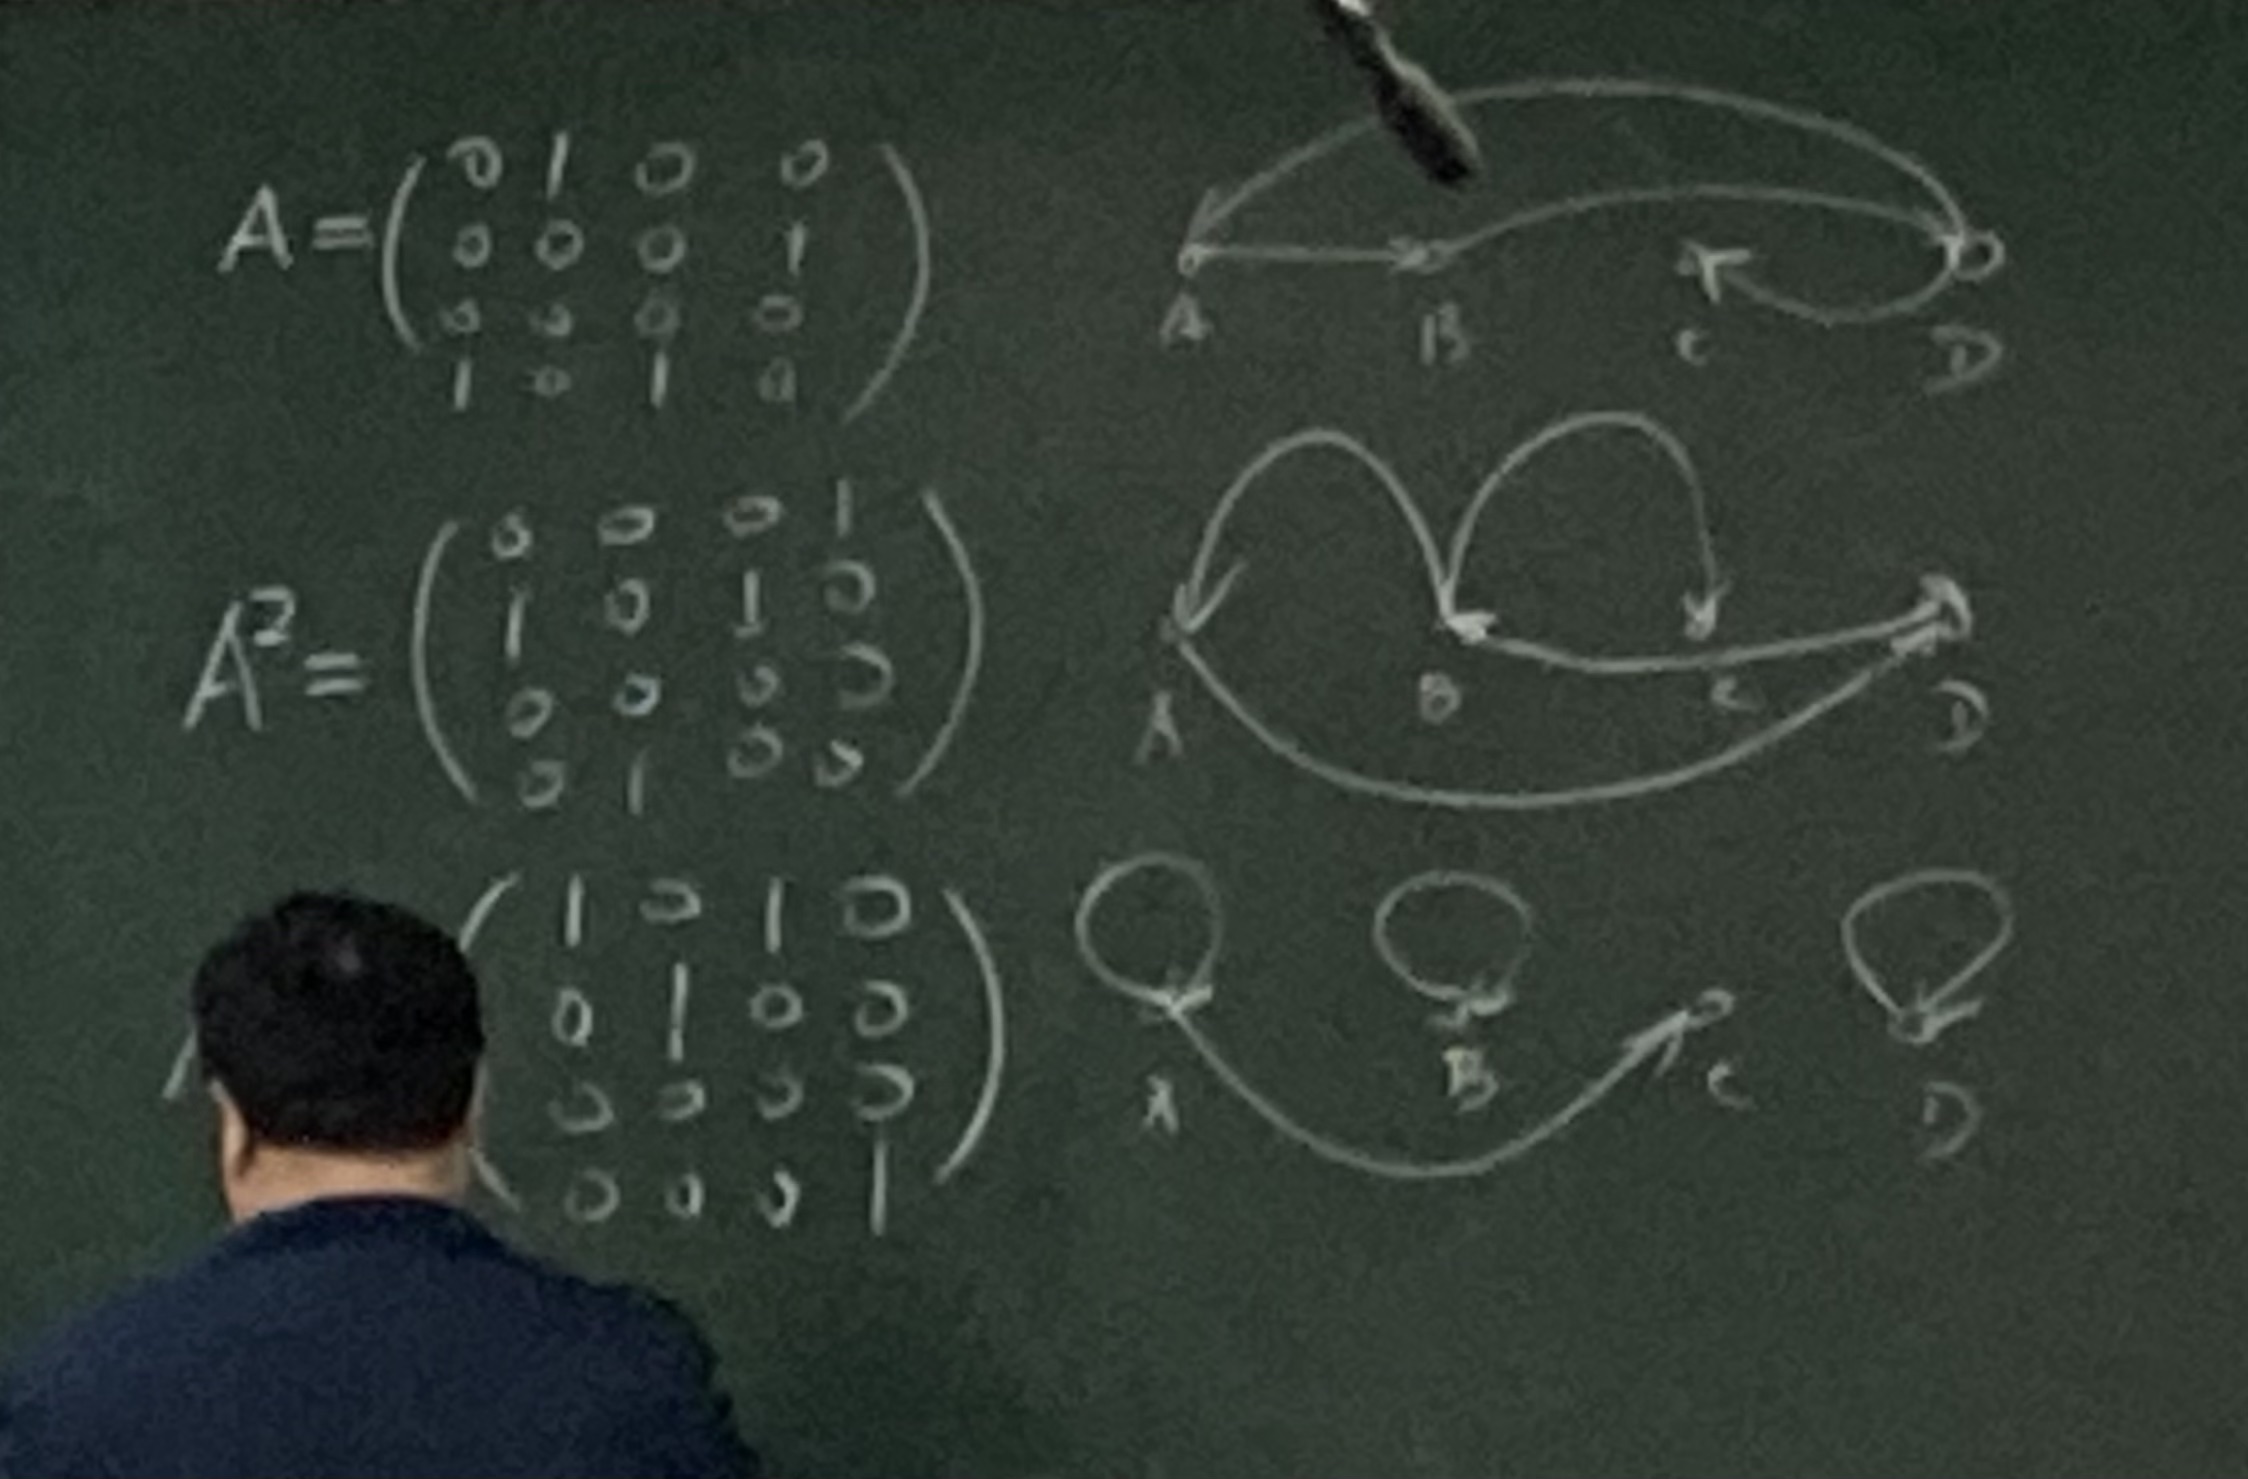 A = ( 0 1 0 0
0 0 0 1
0 0 0 0
1 0 1 0 )
A B C D
A² = ( 0 0 0 1
1 0 1 0
0 0 0 0
0 1 0 0 )
A B C D
( 1 0 1 0
0 1 0 0
0 0 0 0
0 0 0 1 )
A B C D